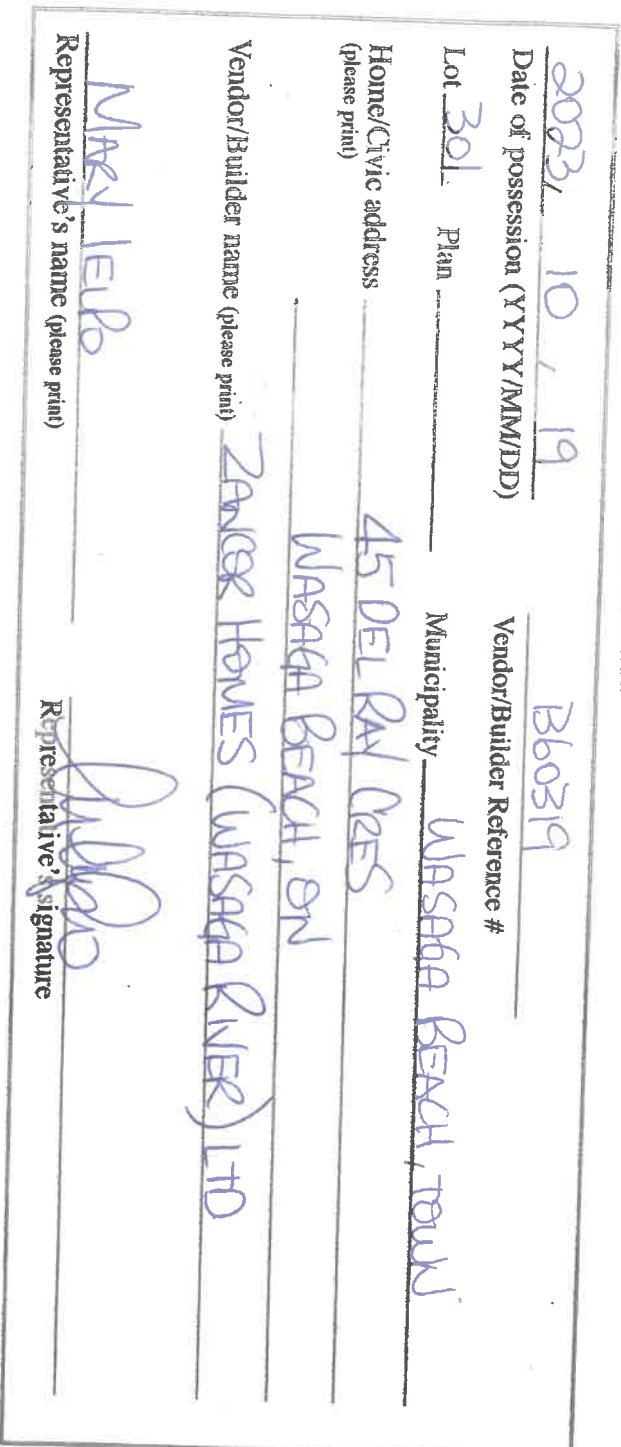 2023, 10, 19 B60319
Date of possession (YYYY/MM/DD) Vendor/Builder Reference #
Lot 301 Plan Municipality WASAGA BEACH, TOWN
Home/Civic address 45 DEL RAY CRES
(please print)
WASAGA BEACH, ON
Vendor/Builder name (please print) ZANCOR HOMES (WASAGA RIVER) LTD
MARY
Representative's name (please print) Representative's signature